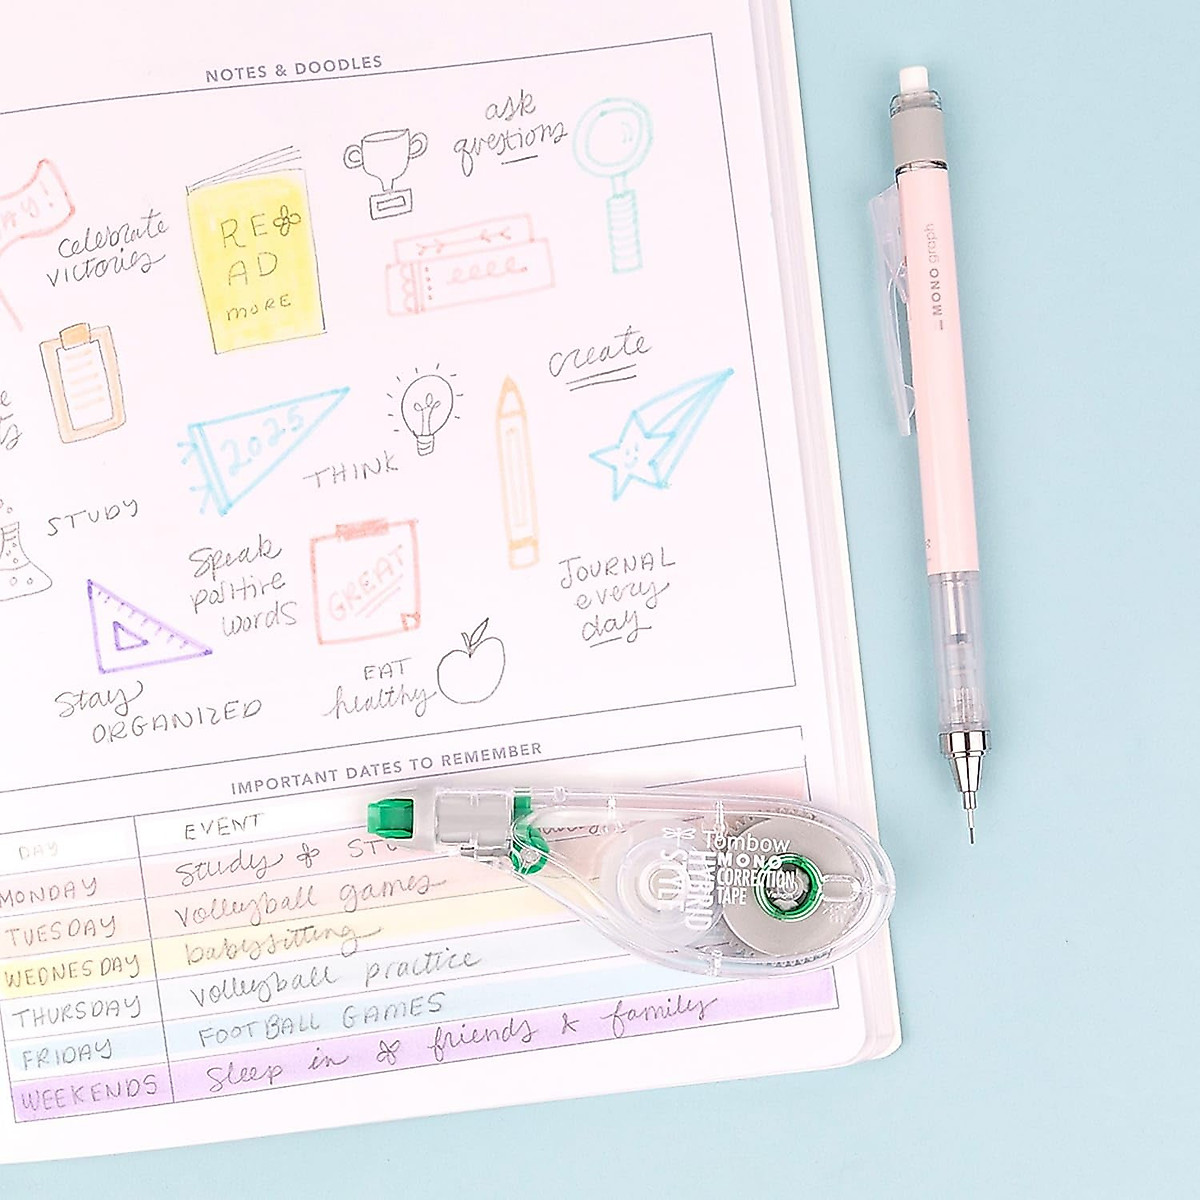 NOTES & DOODLES
AY!
celebrate
victories
READ
MORE
ask
questions
create
2025
THINK
STUDY
Speak
positive
words
GREAT
JOURNAL
every
day
Stay
ORGANIZED
EAT
healthy
IMPORTANT DATES TO REMEMBER
DAY EVENT
MONDAY Study & STU
TUESDAY volleyball games
WEDNESDAY babysitting
THURSDAY volleyball practice
FRIDAY FOOTBALL GAMES
WEEKENDS Sleep in & friends & family
Tombow
MONO
CORRECTION
TAPE
HYBRID
STYLE
MONO graph